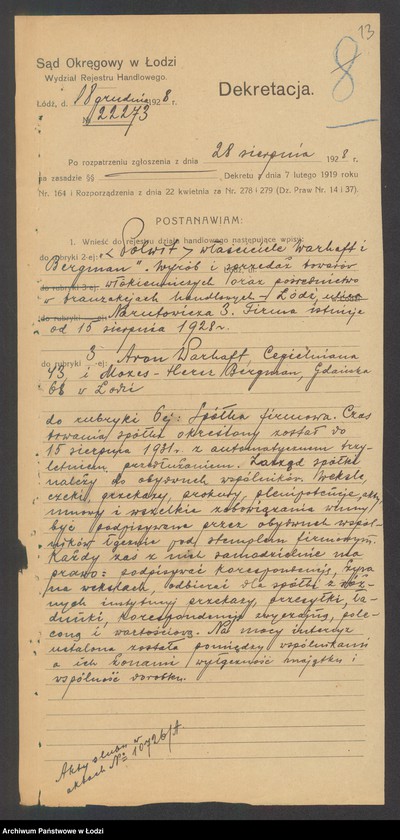 13
8
Sąd Okręgowy w Łodzi
Wydział Rejestru Handlowego.
Łódź, d. 18 grudnia 1928 r.
№ 22273
Dekretacja.
Po rozpatrzeniu zgłoszenia z dnia 28 sierpnia 1928 r.
na zasadzie §§ Dekretu z dnia 7 lutego 1919 roku
Nr. 164 i Rozporządzenia z dnia 22 kwietnia za Nr. 278 i 279 (Dz. Praw Nr. 14 i 37).
POSTANAWIAM:
1. Wnieść do rejestru działu handlowego następujące wpisy:
do rubryki 2-ej: „Polwit" właściciele Warhaft i
Bergman". Wyrób i sprzedaż towarów
do rubryki 3-ej: włókienniczych oraz pośrednictwo
w tranzakcjach handlowych – Łódź, ulica
do rubryki ej: Narutowicza 3. Firma istnieje
od 15 sierpnia 1928 r.
do rubryki 3 ej: Aron Warhaft, Cegielniana
43, i Mozes-Herer Bergman, Gdańska
68 w Łodzi
do rubryki 6ej: Spółka firmowa. Czas
trwania spółki określony został do
15 sierpnia 1931 r. z automatycznem trzy-
letniem przedłużaniem. Zarząd spółki
należy do obydwuch wspólników. Weksle,
czeki, przekazy, prokury, plenipotencje, akty,
umowy i wszelkie zobowiązania winny
być podpisywane przez obydwuch wspól-
ników łącznie pod stemplem firmowym.
Każdy zaś z nich samodzielnie ma
prawo: podpisywać korespondencję, żyra
na wekslach, odbierać dla spółki z róż-
nych instytucyj przekazy, przesyłki, ła-
dunki, korespondencję zwyczajną, pole-
coną i wartościową. Na mocy intercyz
ustalona została pomiędzy wspólnikami
a ich żonami wyłączność majątku i
wspólność dorobku.
Akty ślubu w
aktach № 10726/A
Archiwum Państwowe w Łodzi